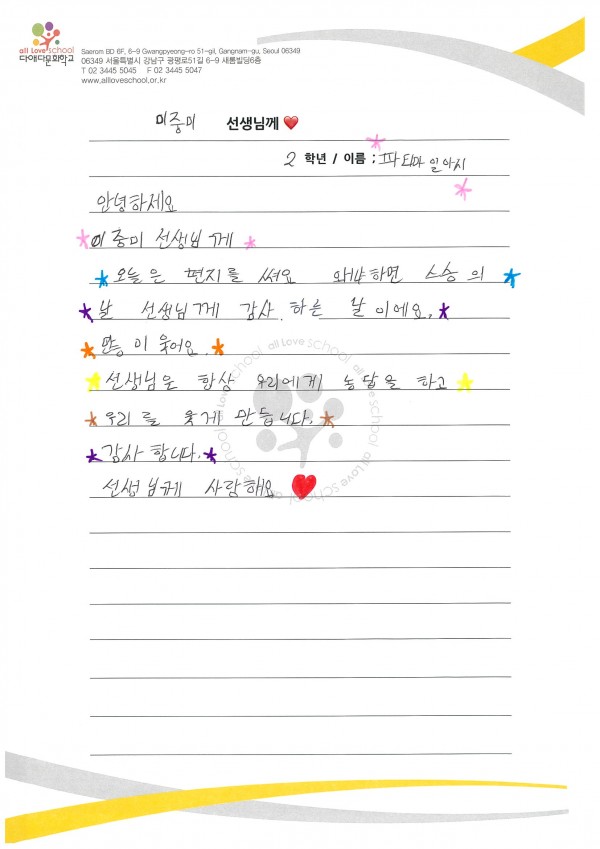 all Love school
다애다문화학교
Saerom BD 6F, 6-9 Gwangpyeong-ro 51-gil, Gangnam-gu, Seoul 06349
06349 서울특별시 강남구 광평로51길 6-9 새롬빌딩6층
T 02 3445 5045 F 02 3447 5047
www.allloveschool.or.kr
이중미 선생님께
2 학년 / 이름 : 파티마 일아시
안녕하세요
이중미 선생님께
오늘은 편지를 써요 왜냐하면 스승의
날 선생님께 감사 하는 날이에요.
이 웃어요.
선생님은 항상 우리에게 농담을 하고
우리를 웃게 만듭니다.
감사합니다.
선생님께 사랑해요
all Love school all Love school all Love school